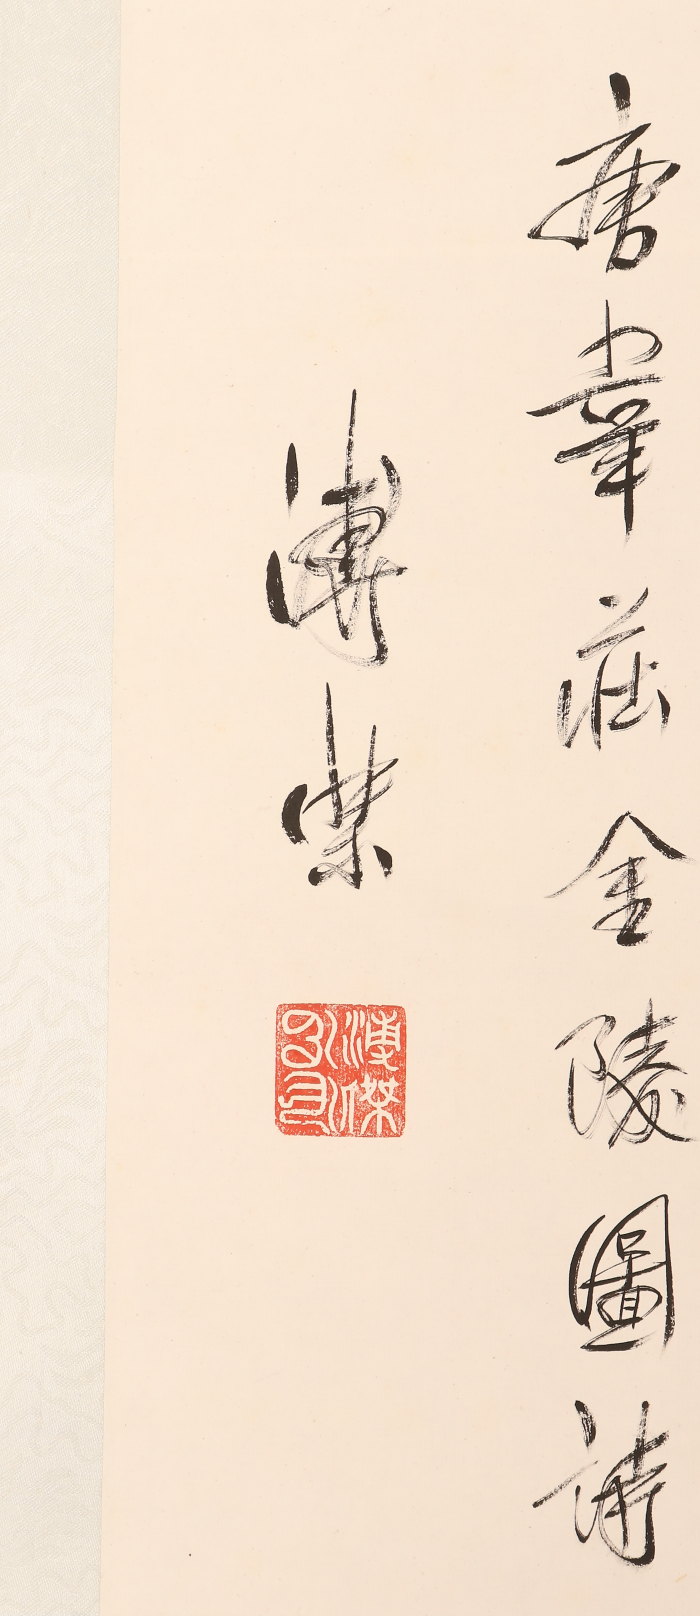 唐韋莊金陵圖詩
溥傑
溥傑